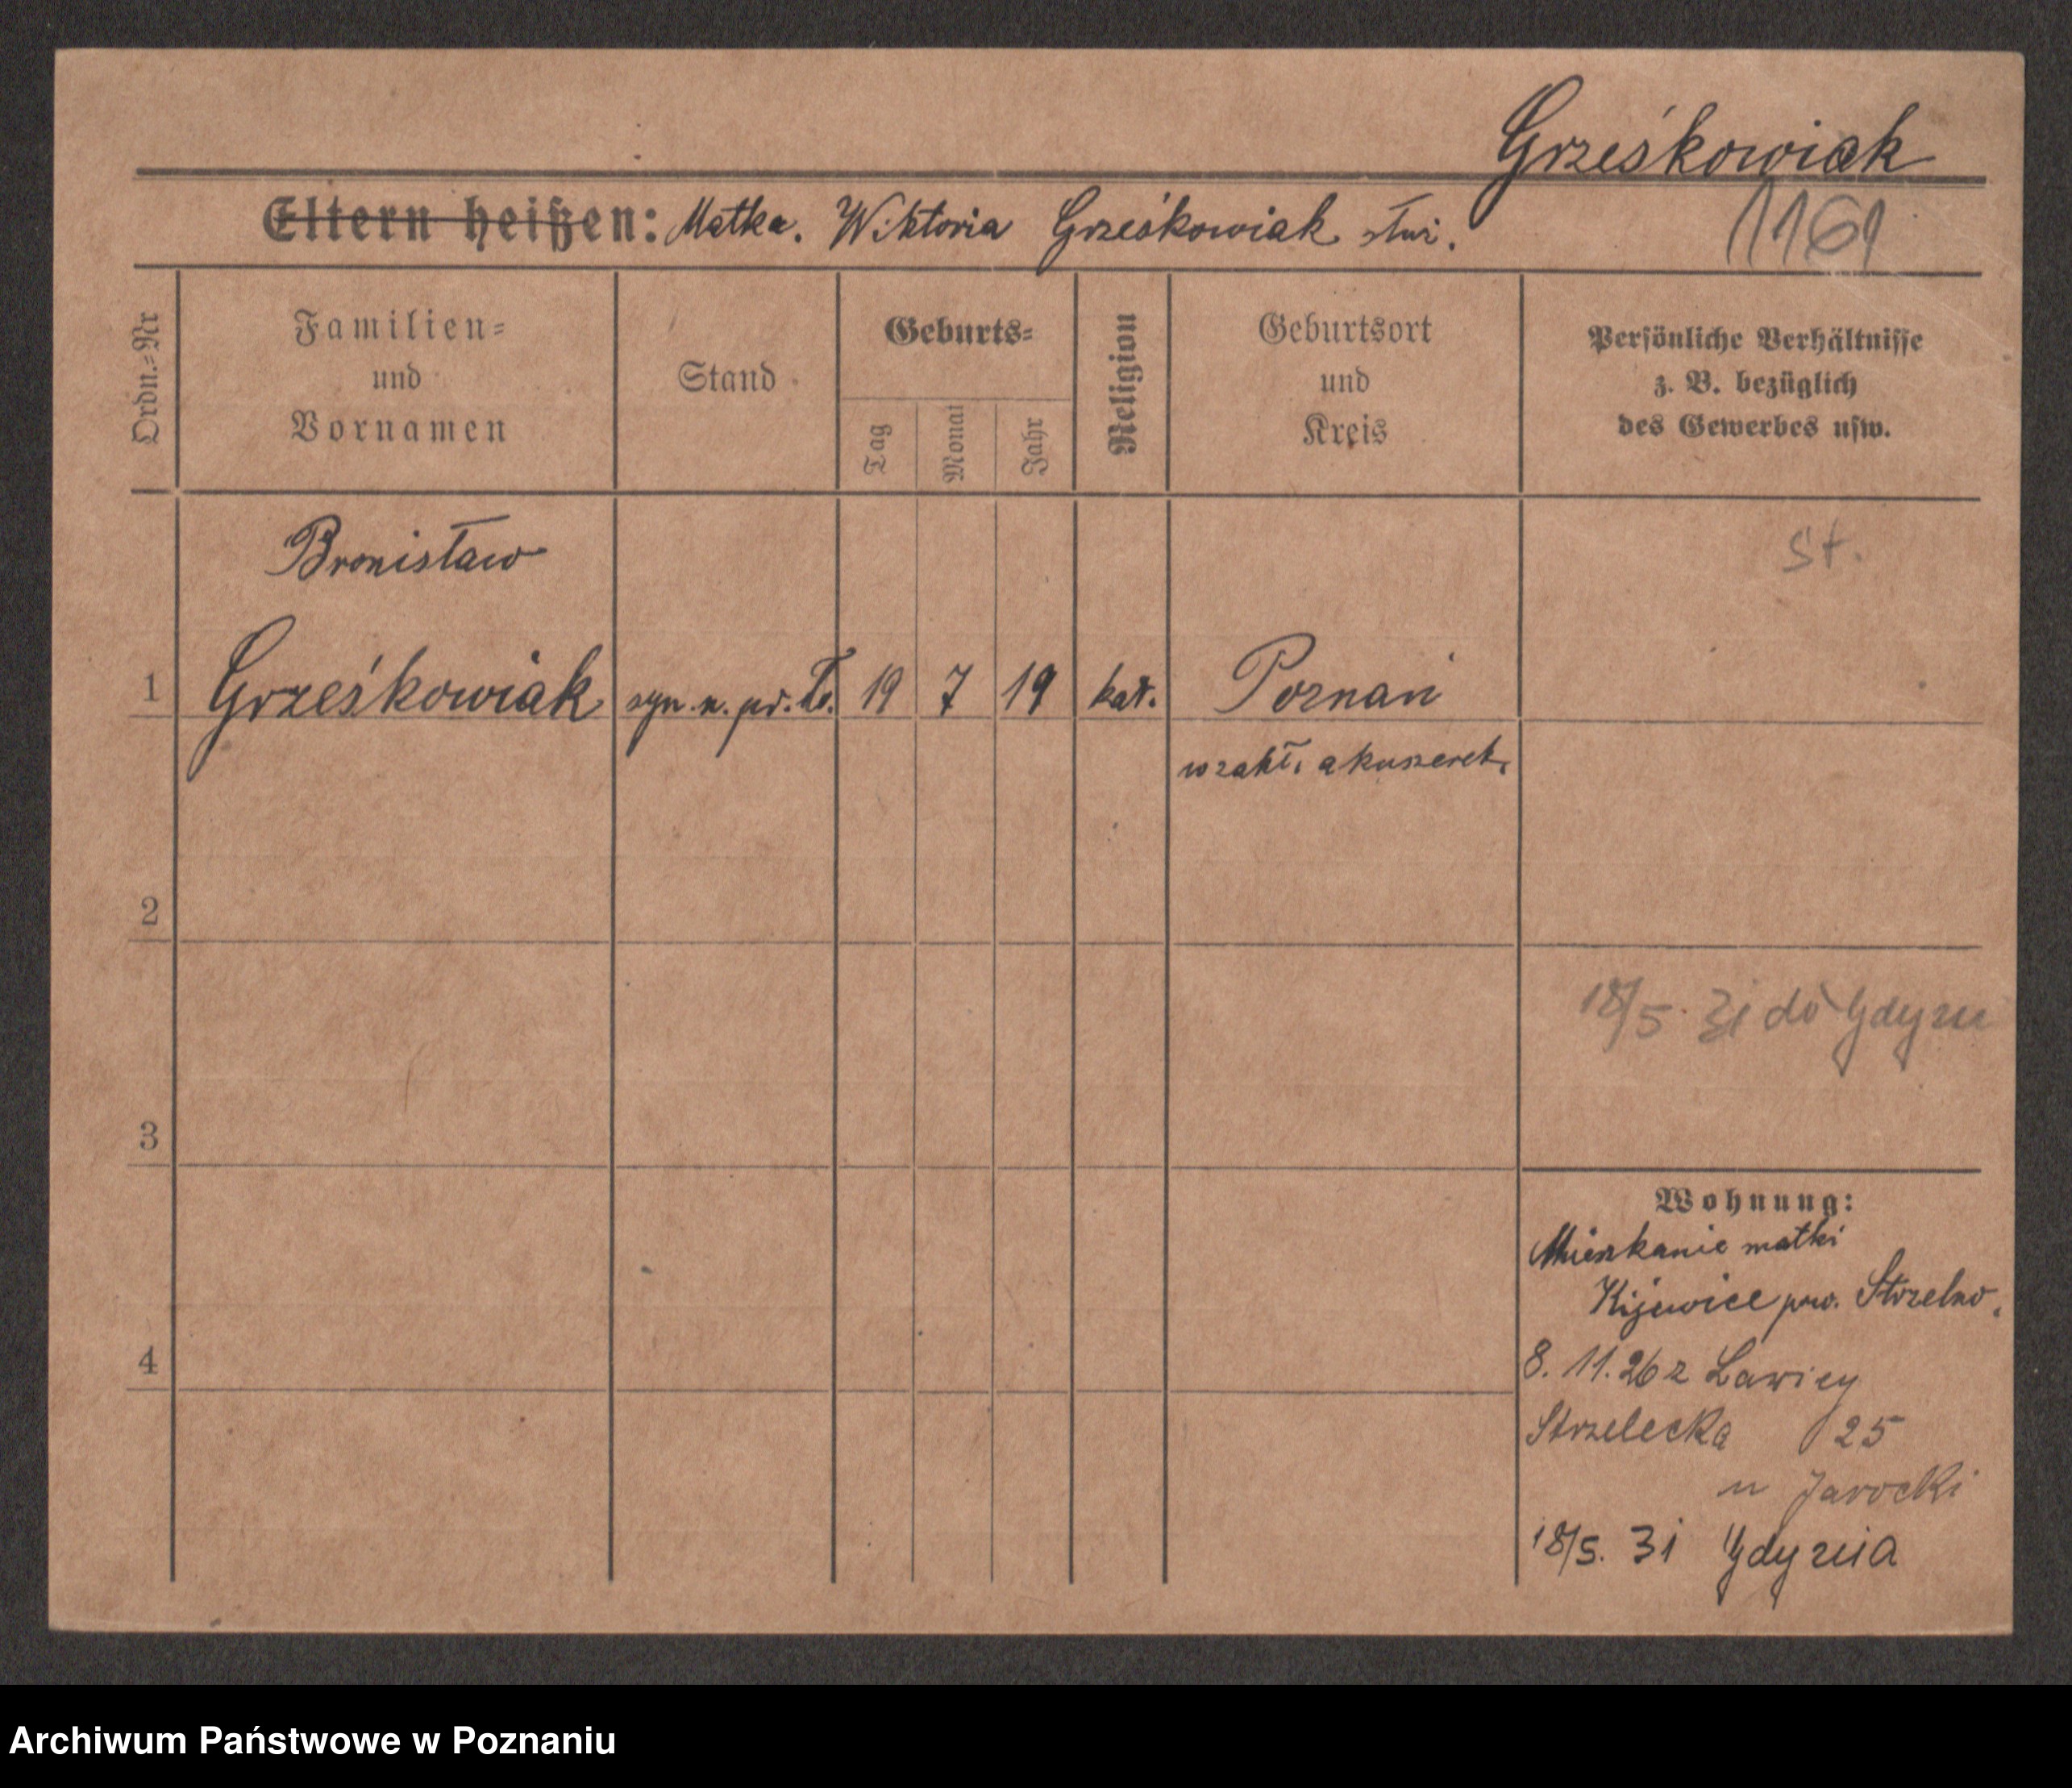 Grześkowiak
Eltern heißen: Matka. Wiktoria Grześkowiak służ.
1161
Ordn.-Nr
Familien-
und
Vornamen
Stand
Geburts-
Tag
Monat
Jahr
Religion
Geburtsort
und
Kreis
Persönliche Verhältnisse
z. B. bezüglich
des Gewerbes usw.
Bronisław
St.
1 Grześkowiak syn n. pr. 19 7 19 kat. Poznań
w zakł. akuszerek.
2
18/5. 31 do Gdyni
3
Wohnung:
Mieszkanie matki
Kijewice pow. Strzelno.
4
8. 11. 26 z Ławicy
Strzelecka 25
u Jarocki
18/5. 31 Gdynia
Archiwum Państwowe w Poznaniu